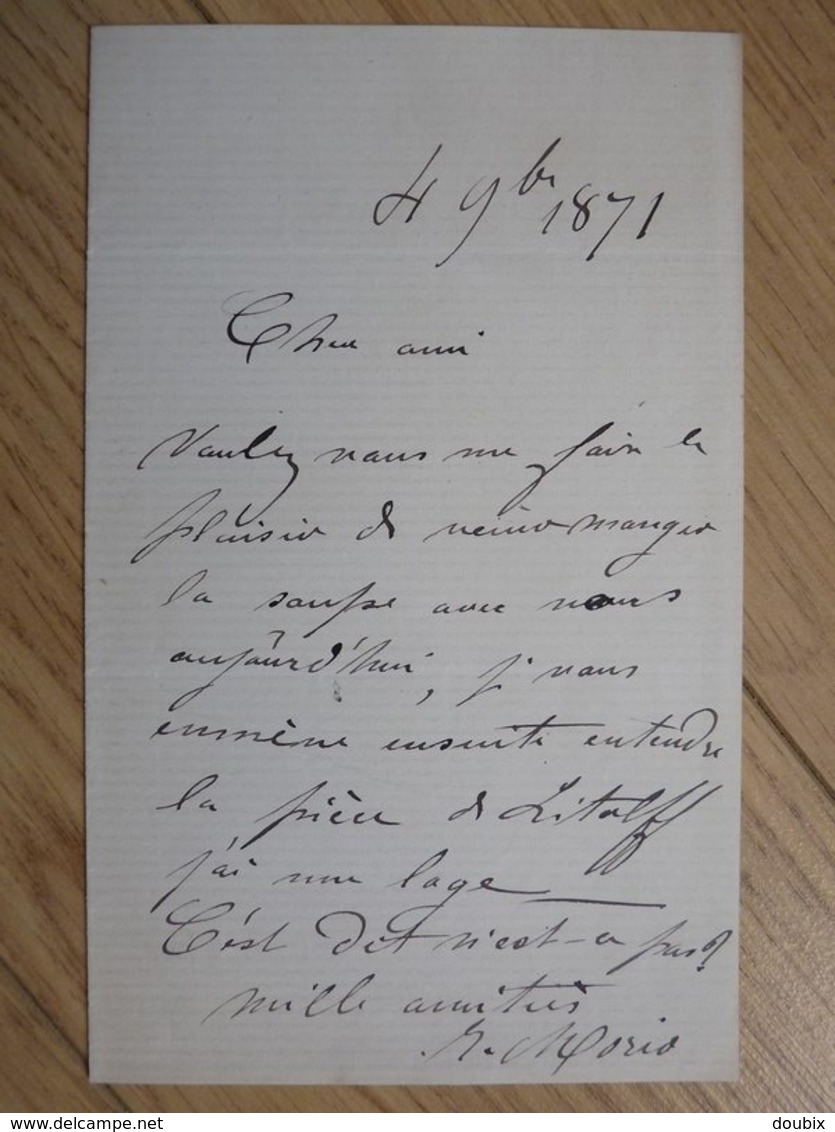 4 9bre 1871
Cher ami
Voulez vous me faire le
plaisir de venir manger
la soupe avec nous
aujourd'hui, je vous
emmène ensuite entendre
la pièce de Litolff
j'ai une loge
C'est dit n'est-ce pas?
mille amitiés
www.delcampe.net
doubix